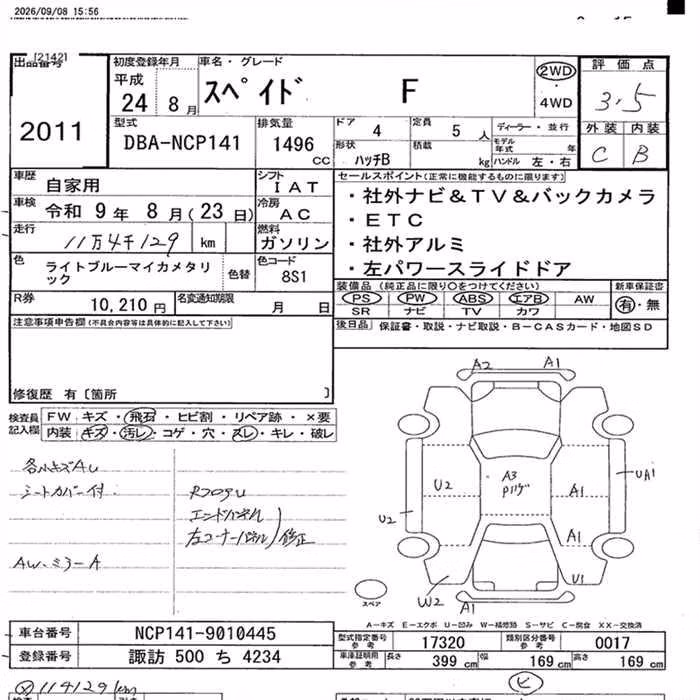 2026/09/08 15:56
出品番号 [2142]
2011
初度登録年月
平成
24 8 月
車名・グレード
スペイド F
2WD
・
4WD
評価点
3.5
外装 内装
C B
型式
DBA-NCP141
排気量
1496 cc
ドア 4
定員 5 人
ディーラー・並行
形状 ハッチB
積載 kg
モデル年式 年
ハンドル 左・右
車歴 自家用
シフト IAT
車検 令和 9 年 8 月(23 日)
冷房 AC
走行 11万4千129 km
燃料 ガソリン
色 ライトブルーマイカメタリック
色替
色コード 8S1
R券 10,210 円
名変通知期限 月 日
セールスポイント(正常に機能するものに限ります)
・社外ナビ&TV&バックカメラ
・ETC
・社外アルミ
・左パワースライドドア
装備品 (純正品に限り○をつけてください)
新車保証書
PS PW ABS エアB AW
SR ナビ TV カワ
有・無
後日品 保証書・取説・ナビ取説・B-CASカード・地図SD
注意事項申告欄(不具合内容等は具体的に記入して下さい)
修復歴 有〔箇所 〕
検査員記入欄
FW キズ・飛石・ヒビ割・リペア跡・×要
内装 キズ・汚レ・コゲ・穴・スレ・キレ・破レ
各小キズAU
シートカバー付.
エンドパネル
左コーナーパネル
修正
AW.ミラーA
A2 A1
U2
A3
A1
UA1
U2
A1
W2
U1
A1
スペア
A-キズ E-エクボ U-凹み W-補修跡 S-サビ C-腐食 XX-交換済
車台番号 NCP141-9010445
登録番号 諏訪 500 ち 4234
型式指定番号参考 17320
類別区分番号参考 0017
車庫証明用参考 長さ 399 cm 幅 169 cm 高さ 169 cm
114129 km